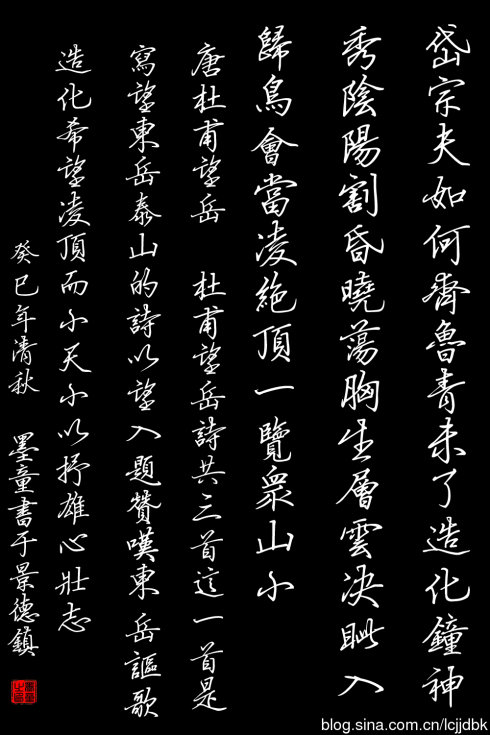 岱宗夫如何齊魯青未了造化鐘神
秀陰陽割昏曉蕩胸生層雲決眦入
歸鳥會當凌絕頂一覽衆山小
唐杜甫望岳 杜甫望岳詩共三首這一首是
寫望東岳泰山的詩以望入題贊嘆東岳謳歌
造化希望凌頂而小天小以抒雄心壯志
癸巳年清秋 墨童書于景德鎮
blog.sina.com.cn/lcjjdbk